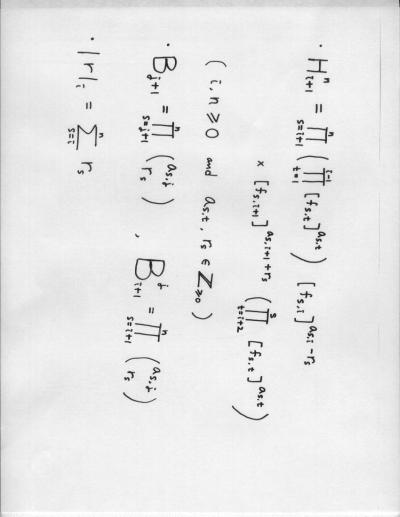 · H^n_{i+1} = ∏_{s=i+1}^{n} ( ∏_{t=1}^{i-1} [f_{s,t}]^{a_{s,t}} ) [f_{s,i}]^{a_{s,i} - r_s}
× [f_{s,i+1}]^{a_{s,i+1} + r_s} ( ∏_{t=i+2}^{s} [f_{s,t}]^{a_{s,t}} )
( i, n ≥ 0 and a_{s,t}, r_s ∈ ℤ_{≥0} )
· B^j_{j+1} = ∏_{s=j+1}^{n} \binom{a_{s,j}}{r_s} , B^j_{i+1} = ∏_{s=i+1}^{n} \binom{a_{s,j}}{r_s}
· |r|_i = ∑_{s=i}^{n} r_s